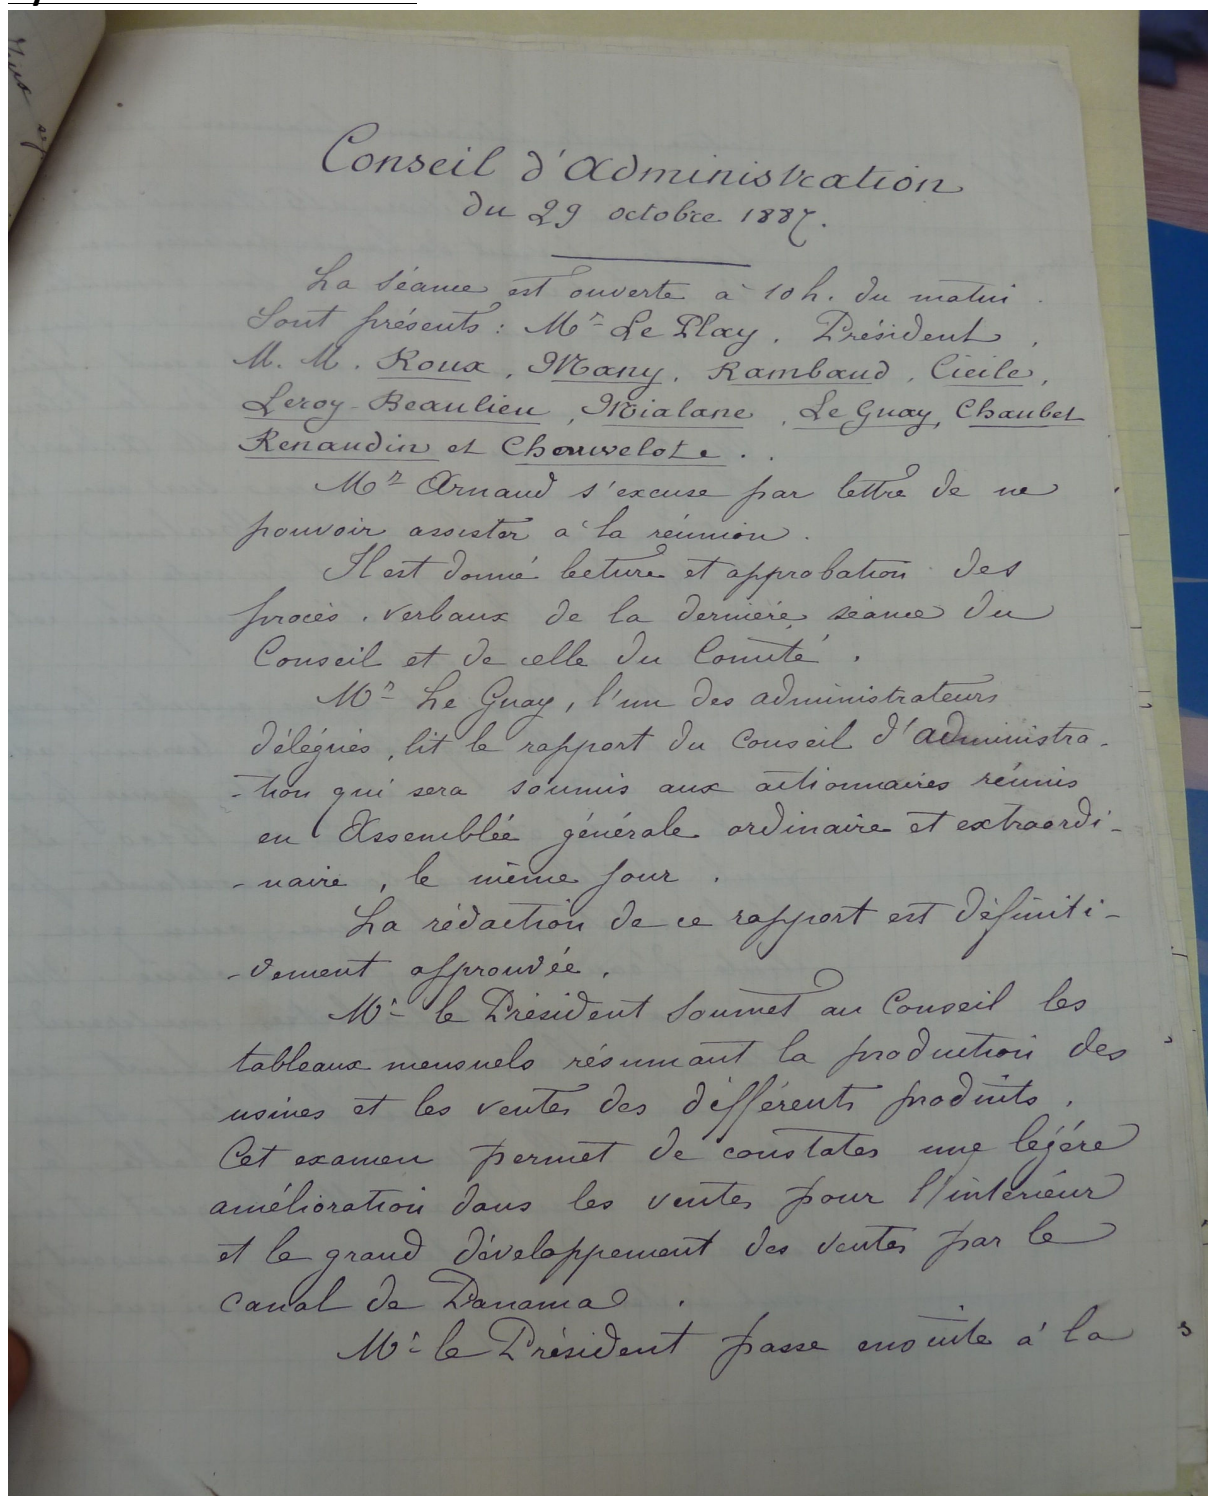 Conseil d'Administration
du 29 octobre 1887.
La séance est ouverte à 10 h. du matin.
Sont présents : Mr Le Play, Président,
M. M. Roux, Many, Rambaud, Cécile,
Leroy-Beaulieu, Mialane, Le Guay, Chaubet
Renaudin et Chouvelote.
Mr Arnaud s'excuse par lettre de ne
pouvoir assister à la réunion.
Il est donné lecture et approbation des
procès-verbaux de la dernière séance du
Conseil et de celle du Comité.
Mr Le Guay, l'un des administrateurs
délégués, lit le rapport du Conseil d'administra-
-tion qui sera soumis aux actionnaires réunis
en Assemblée générale ordinaire et extraordi-
-naire, le même jour.
La rédaction de ce rapport est définiti-
-vement approuvée.
Mr le Président soumet au Conseil les
tableaux mensuels résumant la production des
usines et les ventes des différents produits.
Cet examen permet de constater une légère
amélioration dans les ventes pour l'intérieur
et le grand développement des ventes par le
canal de Panama.
Mr le Président passe ensuite à la